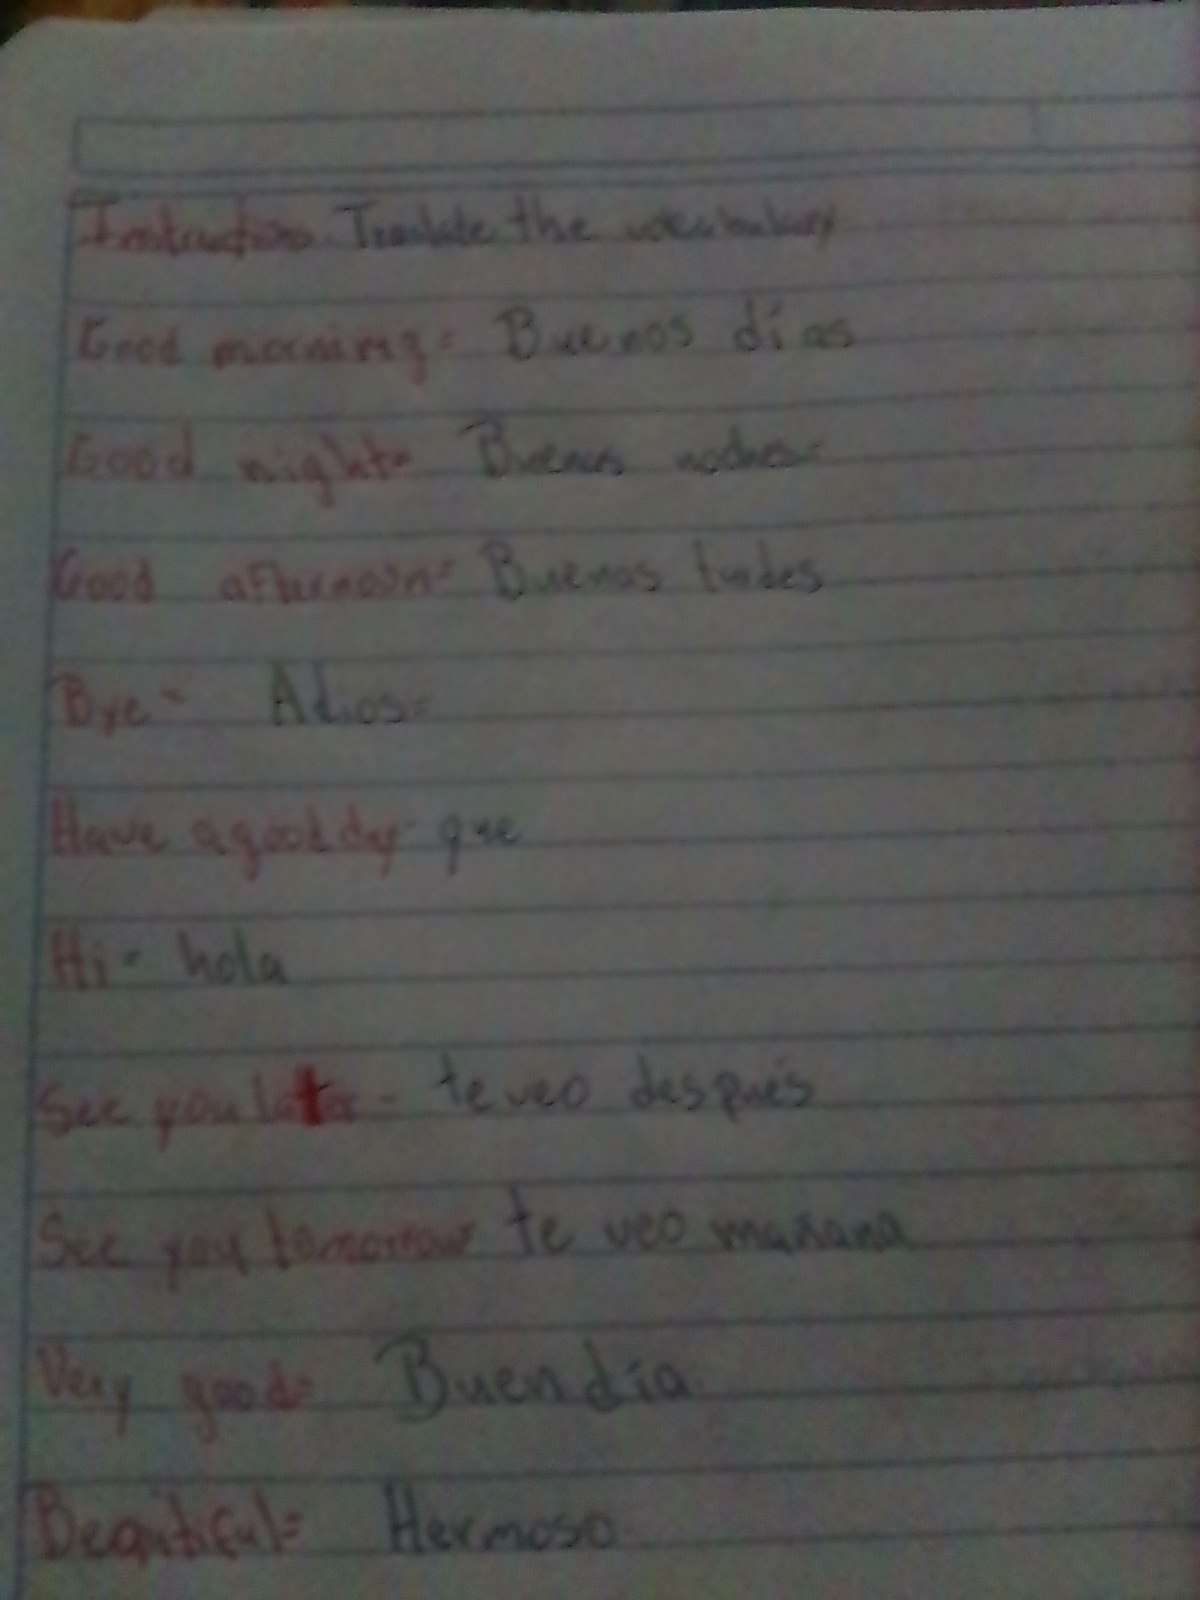 Instructions Translate the vocabulary
Good morning= Buenos días
Good night= Buenas noches
Good afternoon= Buenas tardes
Bye- Adios
Have a good day- que
Hi- hola
See you later- te veo después
See you tomorrow te veo mañana
Very good= Buen día
Beautiful= Hermoso